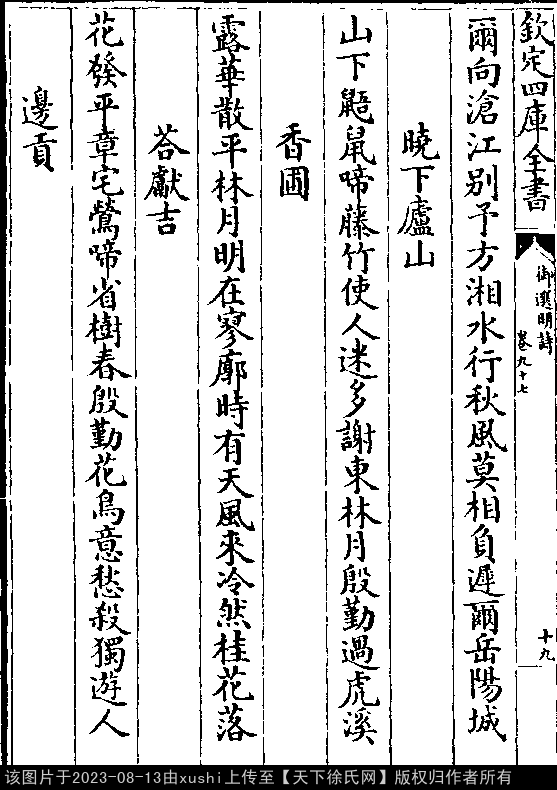 欽定四庫全書
御選明詩
卷九十七
十九
爾向滄江别予方湘水行秋風莫相負遲爾岳陽城
曉下廬山
山下鼯鼠啼藤竹使人迷多謝東林月殷勤過虎溪
香圃
露華散平林月明在寥廓時有天風來冷然桂花落
荅獻吉
花發平章宅鶯啼省樹春殷勤花鳥意愁殺獨遊人
邊貢
该图片于2023-08-13由xushi上传至【天下徐氏网】版权归作者所有